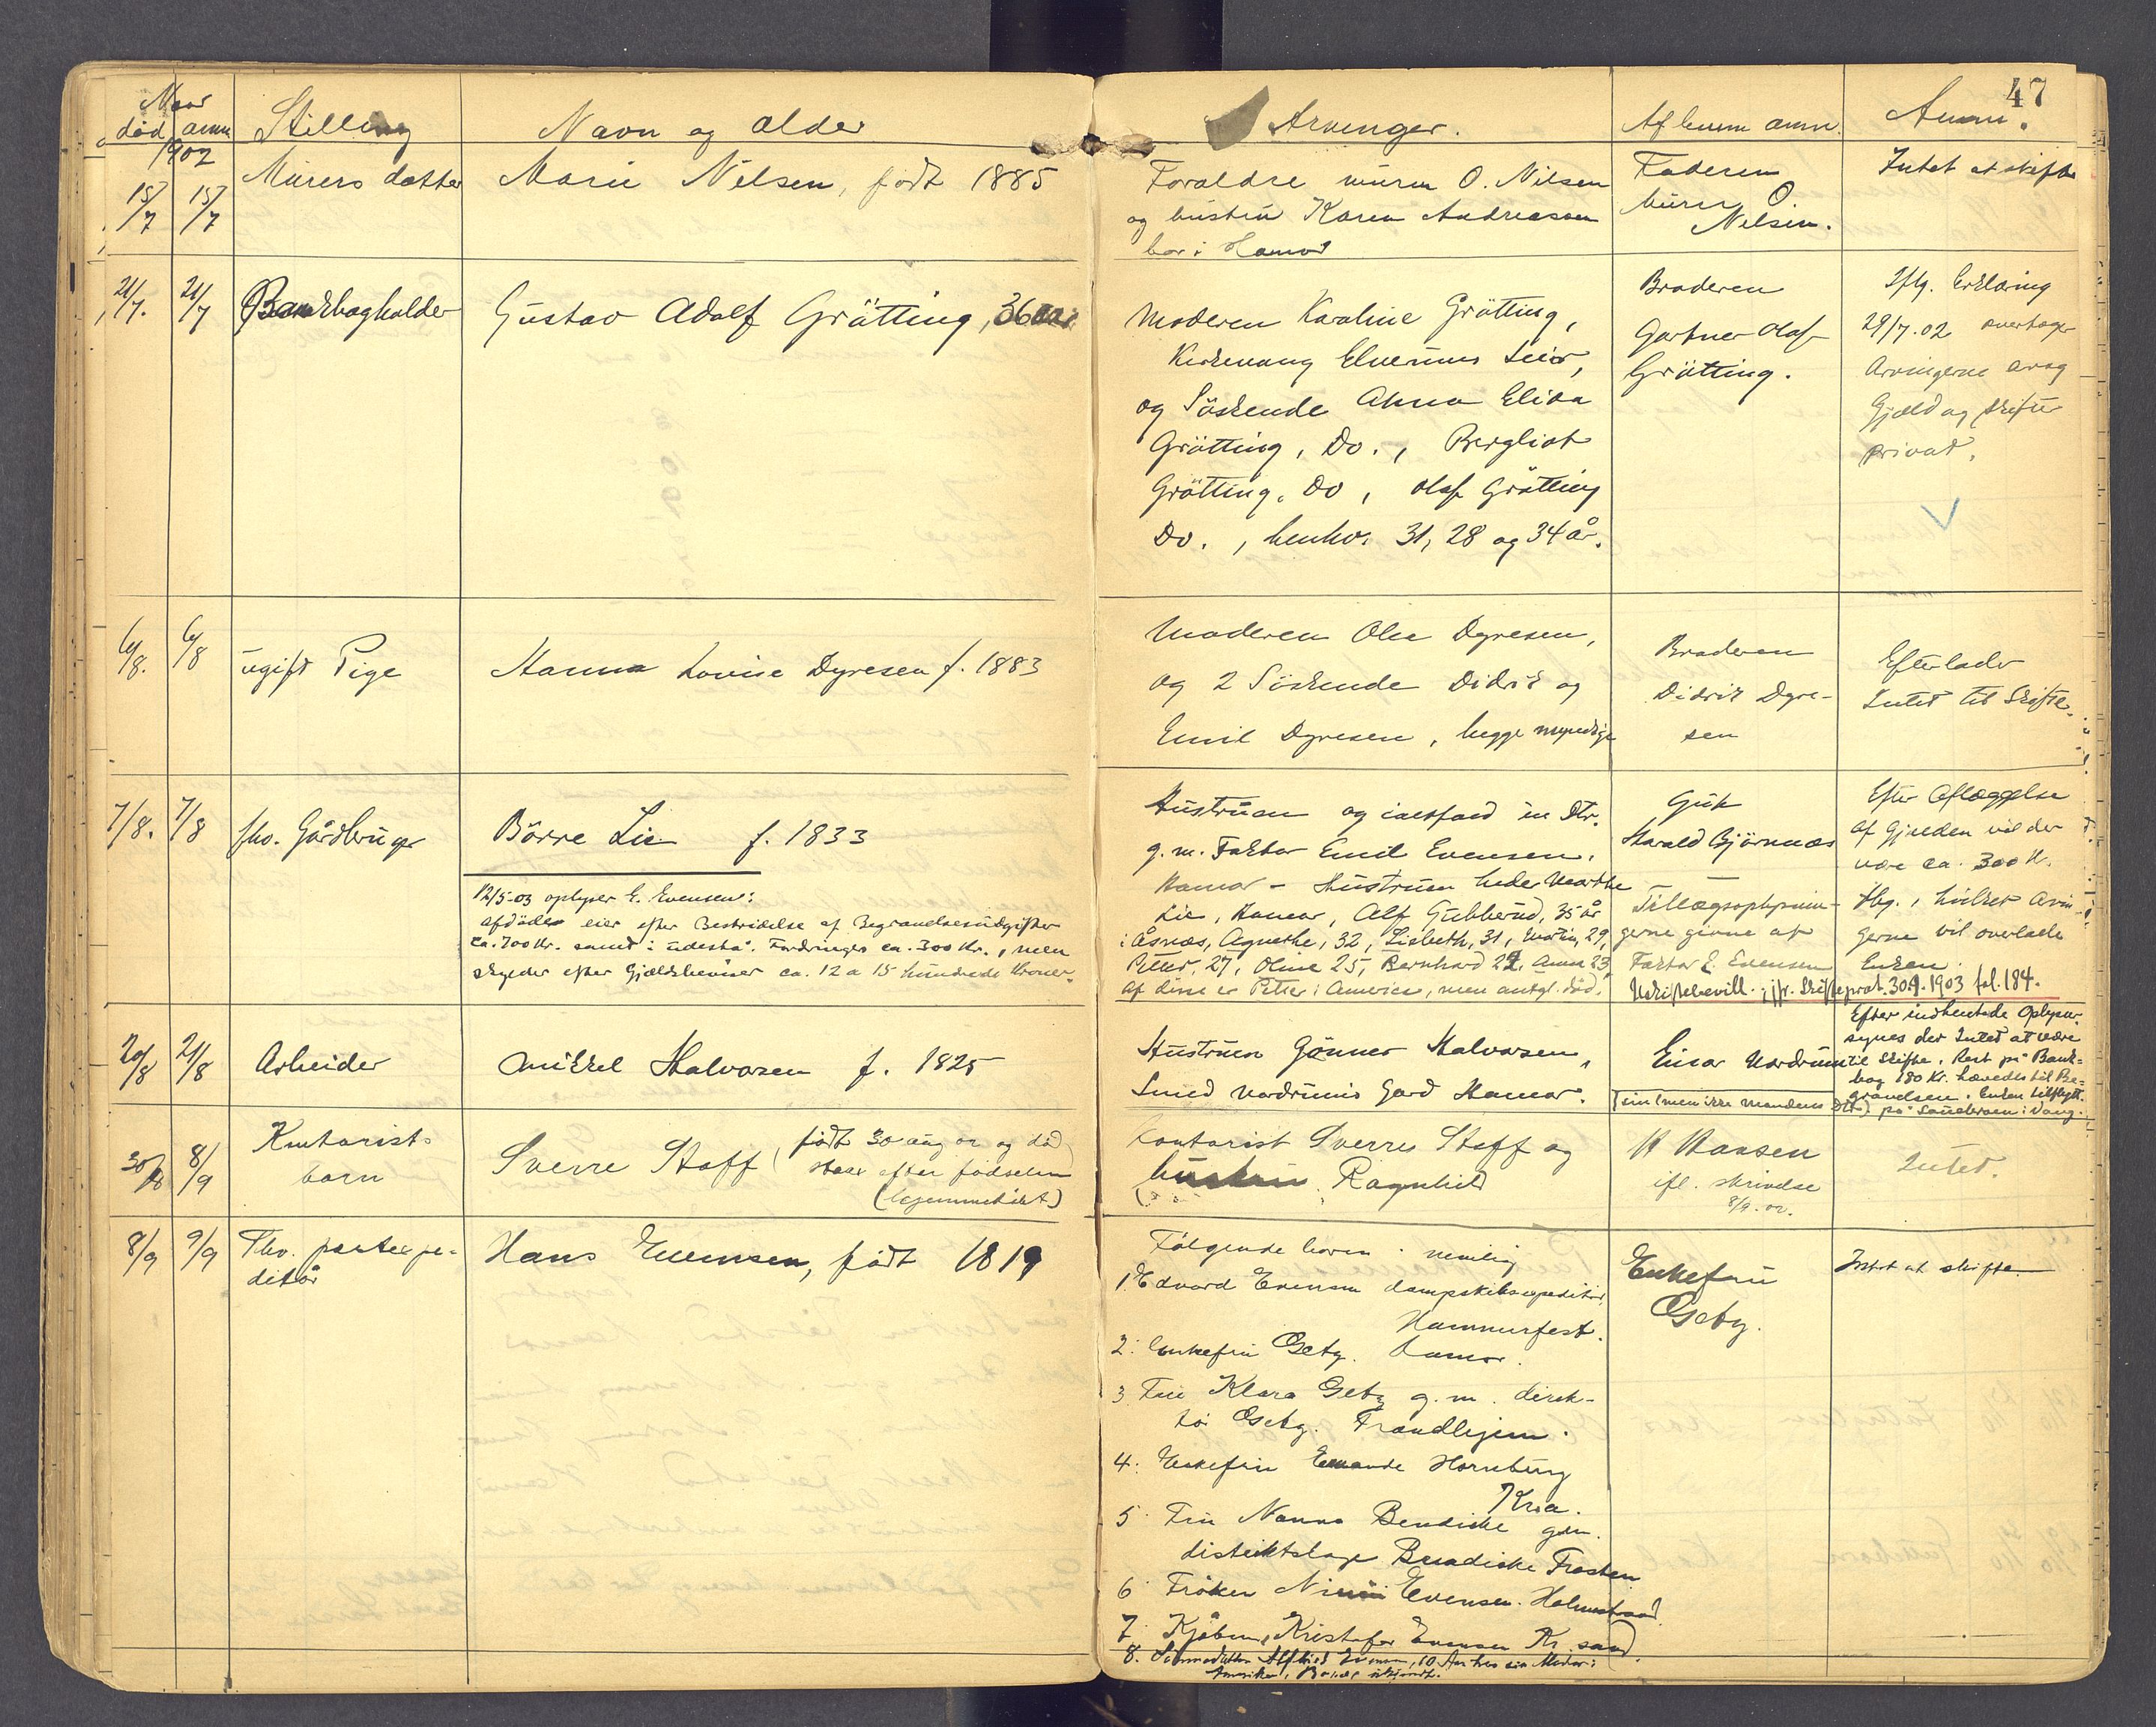 47
Naar
død anm
Stilling
Navn og alder
Arvinger.
Af hvem anm.
Anm.
1902
15/7 15/7
Murers datter
Marie Nilsen, født 1885
Foraldre murer O. Nilsen
og hustru Karen Andreassen
bor i Hamar
Faderen
murer O.
Nilsen.
Intet at skifte
21/7. 21/7
Bankbogholder
Gustav Adolf Grötting, 36
Moderen Karoline Grötting,
Kirkevang Elverums Leir,
og Söskende Anna Elisa
Grötting, Do., Bergliot
Grötting, Do, Olaf Grötting
Do., henhv. 31, 28 og 34 år.
Broderen
Gartner Olaf
Grötting.
Iflg. Erklæring
29/7.02 overtager
Arvingerne arv og
Gjæld og skifter
privat.
6/8. 6/8
ugift Pige
Hanna Lovise Dyresen f. 1883
Moderen Ole Dyresen,
og 2 Söskende Didrik og
Emil Dyresen, begge myndige
Broderen
Didrik Dyre-
sen
Efterlader
Intet til Skifte.
7/8. 7/8
fhv. Gårdbruger
Börre Lie f. 1833
12/5-03 oplyser E. Evensen:
Afdöde eier efter Bestridelse af Begravelsesudgifter
ca. 700 Kr. samt i udestå. Fordringer ca. 300 Kr., men
skylder efter Gjældsbeviser ca. 12 a 15 hundrede Kroner.
Hustruen og ialfald en Dtr.
g. m. Faktor Emil Evensen,
Hamar - Hustruen heder Marthe
Lie, Hamar, Alf Gubberud, 35 år
i Åsnæs, Agnethe, 32, Lisbeth, 31, Martin, 29,
Petter, 27, Oline 25, Bernhard 24, Anna 23,
Af disse er Petter i America, men antgl. död.
Guk
Harald Björnnæs
Tillægsoplysnin-
gerne givne af
Faktor E. Evensen
Uskiftebevill.; jfr. Skifteprot. 30/9. 1903 fol. 184.
Efter Aflæggelse
af Gjælden vil der
være ca. 300 Kr.
tilbg., hvilket Arvin-
gerne vil overlade
Enken.
20/8 21/8
Arbeider
Mikkel Halvorsen f. 1825
Hustruen Gönner Halvorsen,
Smed Nordrums Gard Hamar.
Einar Nordrum
(sin (men ikke Mandens) Dtr.)
Efter indhentede Oplysn.
synes der Intet at være
til Skifte. Rest på Bank-
bog 180 Kr. hævedes til Be-
gravelsen. Enken tilflytt.
på Sandbraen i Vang.
30/8 8/9
Kontorist-
barn
Sverre Stoff (født 30 aug 02 og död
strax efter födselen
(hjemmedöbt)
Kontorist Sverre Stoff og
hustru Ragnhild
H Hansen
ifl. skrivelse
8/9.02.
Intet.
8/9 9/9
Fhv. postexpe-
ditör
Hans Evensen, født 1819
Følgende børn nemlig
1. Edvard Evensen dampskibsexpeditör,
Hammerfest.
2. Enkefru Oseby. Hamar.
3 Fru Klara Oseby g. m. direk-
tör Oseby. Trondhjem.
4. Enkefru Hornburg
Kria.
5 Fru Nanna Bendiske gm.
distriktslæge Bendiske Frosten
6 Fröken Evensen. Holmestrand
7. Kjöbm. Kristofer Evensen Kr.sand.
8. Sönnedatter Evensen, 10 Aar hos sin Moder i
Amerika, ukjendt.
Enkefru
Oseby.
Intet at skifte